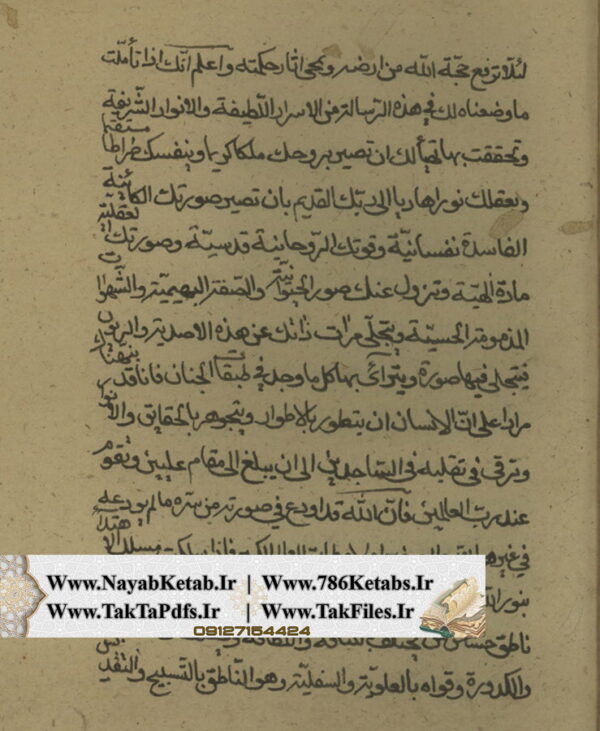 لئلا ترفع حجة الله من ارضه وتمحى اثار حكمته واعلم انك اذا تأملت
ما وضعناه لك في هذه الرسالة من الاسرار اللطيفة والانوار الشريفة
وتحققت بها تهيأ لك ان تصير بروحك ملكا كريما وبنفسك صراطا مستقيما
وبعقلك نورا هاديا الى ربك القديم بان تصير صورتك الكائنة
الفاسدة نفسانية وقوتك الروحانية قدسية وصورتك العقلية
مادة الهية وتزول عنك صور الحيوانية والصفة البهيمية والشهوات
المذمومة الحسية ويتجلى مرات ذاتك عن هذه الاصدية والريون
فيتجلى فيها صورة ويترائى بها كل ما وجد في طبقات الجنان فانا قد
مرارا على ان الانسان ان يتطور بالاطوار ويتجوهر بالحقايق والانوار
وترقى في تقلبه في الساجدين الى ان يبلغ الى مقام عليين وتقوم
عند رب العالمين فان الله قد اودع في صورته من سره ما لم يودعه
في غيرها
بنور
ناطق حساس
والكدورة وقواه بالعلوية والسفلية وهو الناطق بالتسبيح والتقديس
Www.NayabKetab.Ir | Www.786Ketabs.Ir
Www.TakTaPdfs.Ir | Www.TakFiles.Ir
09127154424